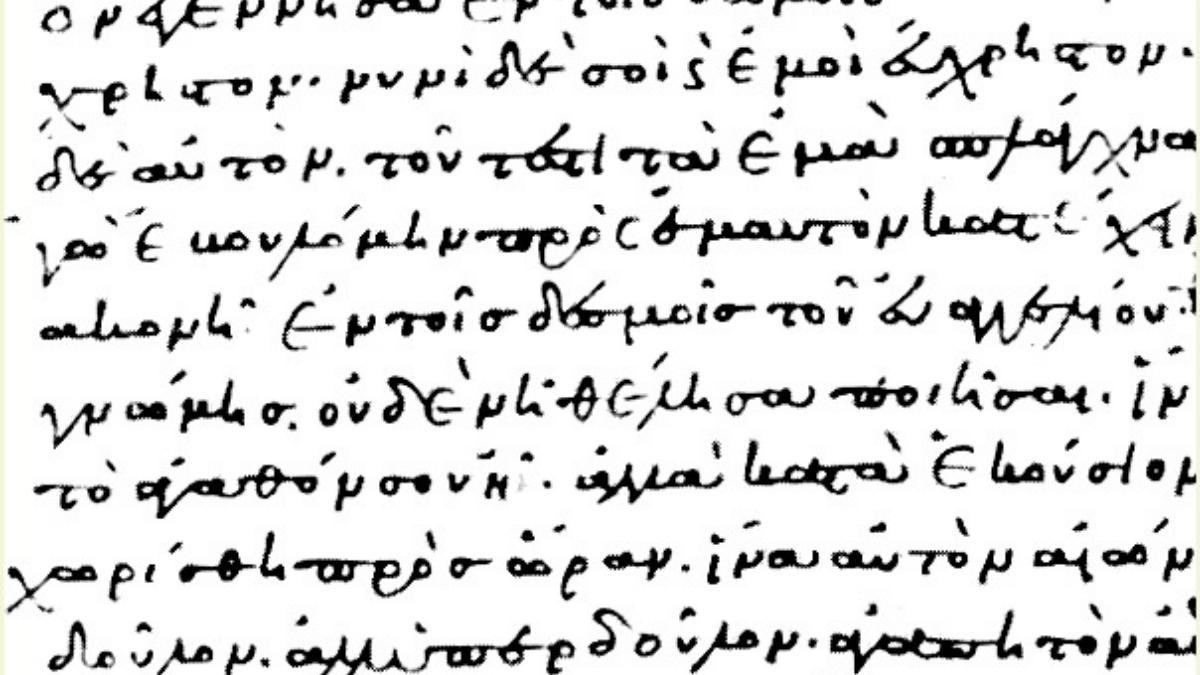 ὃν ἐγέννησα ἐν τοῖς δεσμοῖς
χρηστον· νυνὶ δὲ σοὶ ϛ ἐμοὶ εὔχρηστον·
δὲ αὐτὸν. τοῦτέστι τὰ ἐμὰ σπλάγχνα
γὼ ἐβουλόμην πρὸς ἐμαυτὸν κατέχειν
διακονῆ ἐν τοῖσ δεσμοῖσ τοῦ εὐαγγελίου·
γνώμησ. οὐδὲν ἠθέλησα ποιῆσαι. ἵν
τὸ ἀγαθόν σου ἦ· ἀλλὰ κατὰ ἑκούσιον
χωρίσθη πρὸσ ὥραν. ἵνα αὐτὸν αἰών
δοῦλον. ἀλλ' ὑπὲρ δοῦλον. ἀγαπητὸν ἀ